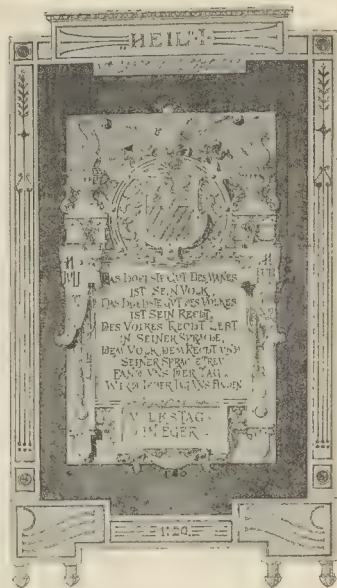 „HEIL"!
DAS HÖCHSTE GVT DES MANES
IST SEIN VOLK,
DAS HÖCHSTE GVT DES VOLKES
IST SEIN RECHT,
DES VOLKES RECHT LEBT
IN SEINER SPRACHE,
DEM VOLK, DEM RECHT VND
SEINER SPRACHE TREV
FAND VNS DER TAG,
WIRD JEDER TAG VNS FINDEN
VOLKSTAG
IN EGER